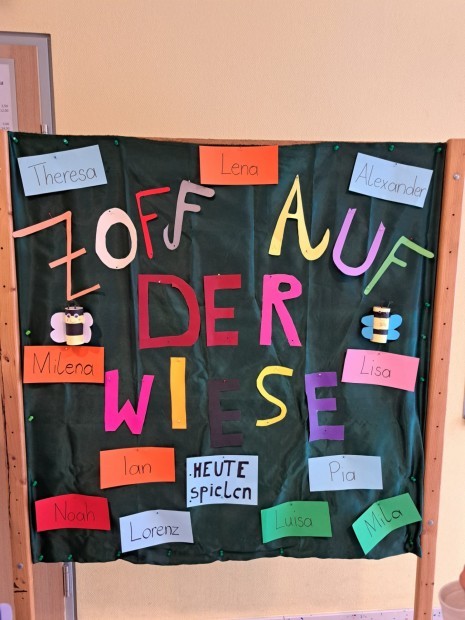 Theresa
Lena
Alexander
ZOFF AUF
DER
Milena
Lisa
WIESE
Ian
HEUTE
spielen
Pia
Noah
Lorenz
Luisa
Mila